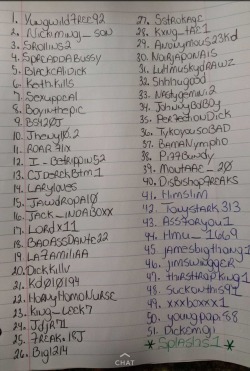 1. Yungwild7Rec92
2. Nickiminaj_son
3. SRollins2
4. SpreadDABussy
5. BlackCAliDick
6. Keith.Kills
7. Sexuppeal
8. Boyinthepic
9. BSH20J
10. Jhevy10.2
11. ROAR.71x
12.
13. CJDORCKBtm1
14. LARylovess
15. JAWdropA10
16. JACK_iNDABOXX
17. Lordx11
18. BADASSDANte22
19. LA7AmiliAA
20. Dickkillv
21. Kd010194
22. HORNyHomoNURSE
23. King_LOCK7
24. Jdjr71
25. 7REAK.18J
26. Big1214
27. Sstrokage
28. Kxng_tAE1
29. Anonymous23Kd
30. NoirJAPONAIS
31. LuhmuskydRAWZ
32. Shhhugood
33. NAStygemini2
34. JohnnyBadBoy
35. PeR7ectionDick
36. TykoyouSOBAD
37. BAMANympho
38. Pi77Bundy
39. MountAAE_20
40. DisBishop7REAKS
41. Himslim
42. Tonystark313
43. ASS7oryou1
44. Hmu_J1669
45. jamesbigthang1
46. jimswiggeRJ
47. thirsttrapKing1
48. suckonthis97
49. xxxboxxx1
50. youngpapi88
51. Dickomgii
*Splash281*
CHAT